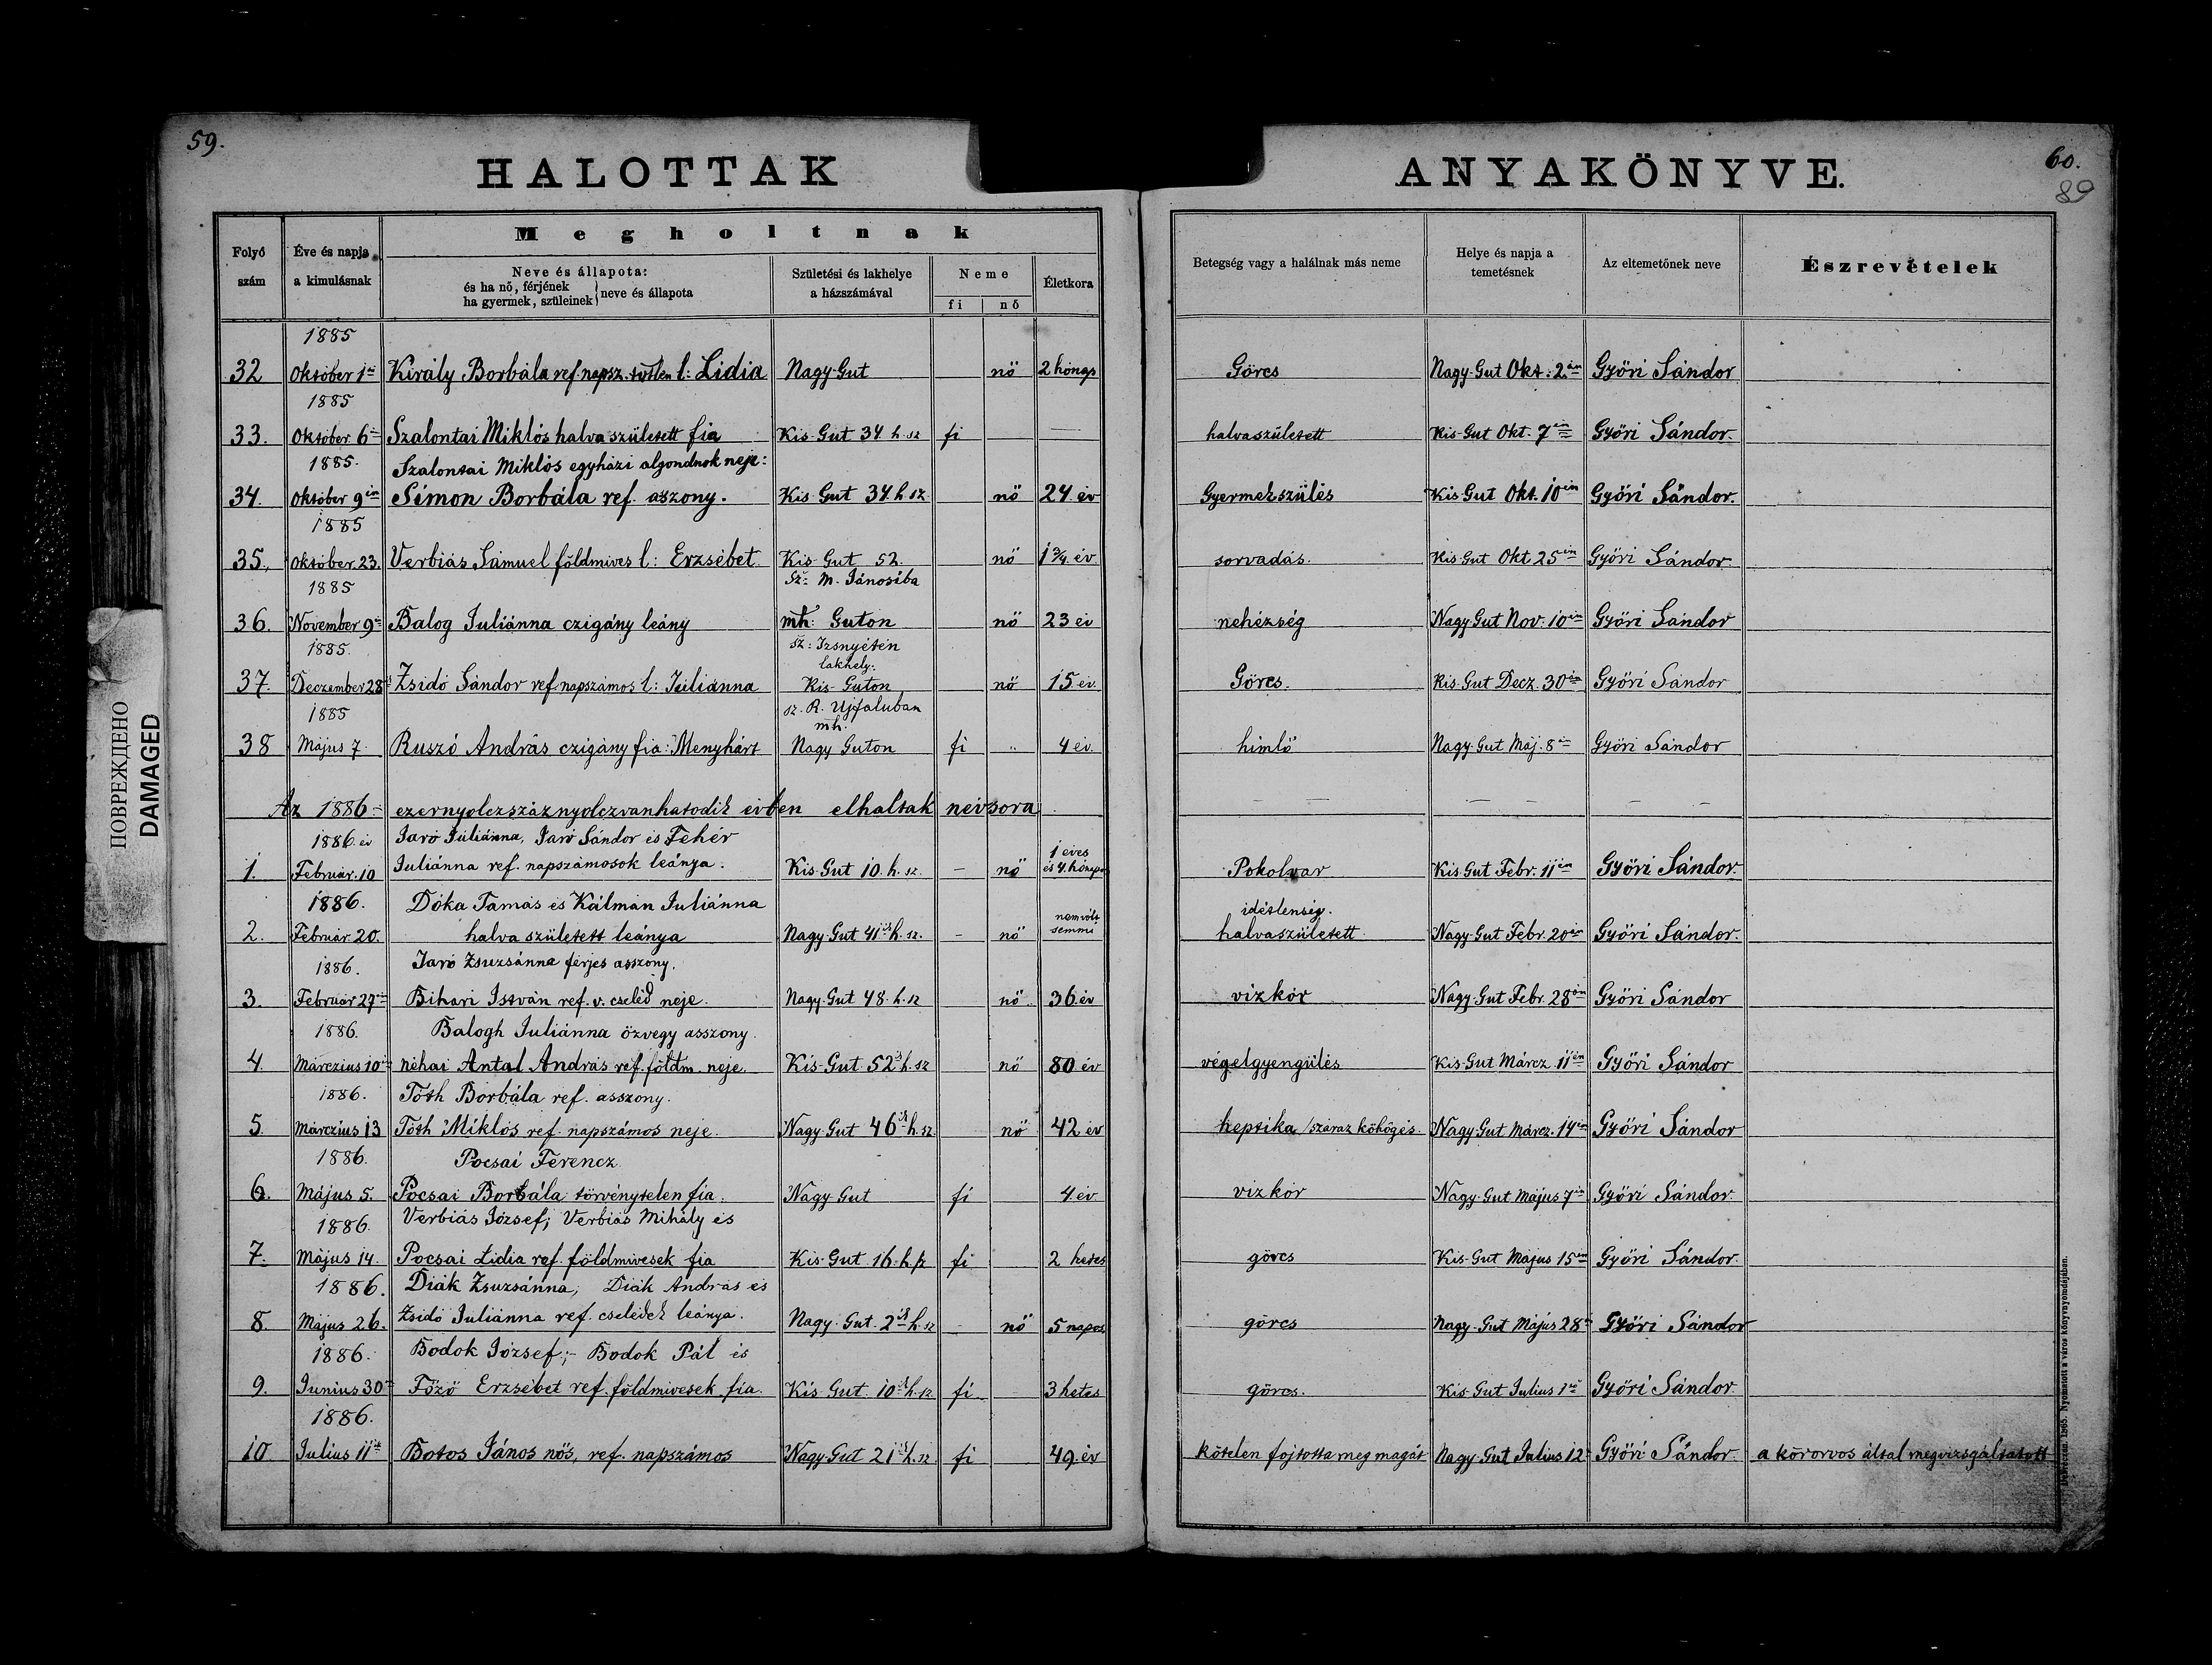 59.
HALOTTAK
ANYAKÖNYVE.
60.
89
Folyó szám
Éve és napja a kimulásnak
Megholtnak
Neve és állapota:
és ha nő, férjének
ha gyermek, szüleinek } neve és állapota
Születési és lakhelye a házszámával
Neme
fi nő
Életkora
Betegség vagy a halálnak más neme
Helye és napja a temetésnek
Az eltemetőnek neve
Észrevételek
1885
32 Október 1én Király Borbála ref. napsz. tvtlen l: Lidia Nagy-Gut nő 2 hónap Görcs Nagy-Gut Okt. 2án Győri Sándor
1885
33. Október 6 Szalontai Miklós halva született fia Kis-Gut 34. h. sz fi — halvaszületett Kis-Gut Okt. 7én Győri Sándor.
1885. Szalontai Miklós egyházi algondnok neje:
34. Október 9én Simon Borbála ref. aszony. Kis-Gut 34. h. sz nő 24 év Gyermekszülés Kis-Gut Okt. 10én Győri Sándor.
1885
35. Október 23. Verbiás Sámuel földmives l: Erzsébet. Kis-Gut 52. nő 1 3/4 év sorvadás. Kis-Gut Okt 25én Győri Sándor
1885 Sz: M. Jánosiba
36. November 9én Balog Juliánna czigány leány mh: Guton nő 23 év nehézség Nagy-Gut Nov. 10én Győri Sándor
1885. sz: Izsnyétén
lakhely:
37. Deczember 28 Zsidó Sándor ref napszámos l: Juliánna Kis-Guton nő 15 év. Görcs. Kis-Gut Decz. 30án Győri Sándor
1885 sz. R. Ujfaluban
mh.
38 Május 7. Ruszó András czigány fia: Menyhárt Nagy Guton fi " 4 év. himlő Nagy-Gut Máj. 8án Győri Sándor
Az 1886- ezernyolczszáznyolczvanhatodik évben elhaltak névsora
1886. év Jaró Juliánna, Jaró Sándor és Fehér
1 éves
1. Február. 10 Juliánna ref. napszámosok leánya. Kis-Gut 10. h. sz. — nő és 4. hónap Pokolvar Kis-Gut Febr. 11én Győri Sándor.
1886. Dóka Tamás és Kálmán Juliánna
nem volt idétlenség.
2. Február. 20. halva született leánya Nagy-Gut 41ik h. sz. - nő semmi halvaszületett Nagy-Gut Febr. 20án Győri Sándor.
1886. Jaró Zsuzsánna férjes asszony.
3. Február 27én Bihari István ref. v. cseléd neje. Nagy-Gut 48. h. sz nő 36. év vizkór Nagy-Gut Febr. 28án Győri Sándor
1886. Balogh Juliánna özvegy asszony.
4. Márczius 10én néhai Antal András ref. földm. neje. Kis-Gut 52ik h. sz nő 80 év végelgyengülés Kis-Gut Márcz 11én Győri Sándor
1886. Tóth Borbála ref. asszony.
5. Márczius 13 Tóth Miklós ref. napszámos neje. Nagy-Gut 46ik h. sz. nő 42 év heptika /száraz köhögés. Nagy-Gut Márcz. 14én Győri Sándor
1886. Pocsai Ferencz
6. Május 5. Pocsai Borbála törvénytelen fia. Nagy-Gut fi 4. év vizkór Nagy-Gut Május 7én Győri Sándor.
1886. Verbiás József; Verbiás Mihály és
7. Május 14. Pocsai Lidia ref. földmivesek fia Kis-Gut 16. h. sz fi 2 hetes görcs Kis-Gut Május 15én Győri Sándor.
1886. Diák Zsuzsánna; Diák András és
8. Május 26. Zsidó Juliánna ref. cselédek leánya. Nagy-Gut. 2ik h. sz - nő 5 napos görcs Nagy-Gut Május 28 Győri Sándor
1886. Bodok József;- Bodok Pál és
9. Junius 30 Főző Erzsébet ref. földmivesek fia. Kis-Gut 10ik h. sz. fi 3 hetes görcs. Kis-Gut Julius 1én Győri Sándor.
1886.
10 Julius 11én Botos János nős, ref. napszámos Nagy-Gut 21ik h. sz fi 49. év kötelen fojtotta meg magát Nagy-Gut Julius 12 Győri Sándor. a körorvos által megvizsgáltatott
Debreczen. 1865. Nyomatott a város könyvnyomdájában.
ПОВРЕЖДЕНО
DAMAGED